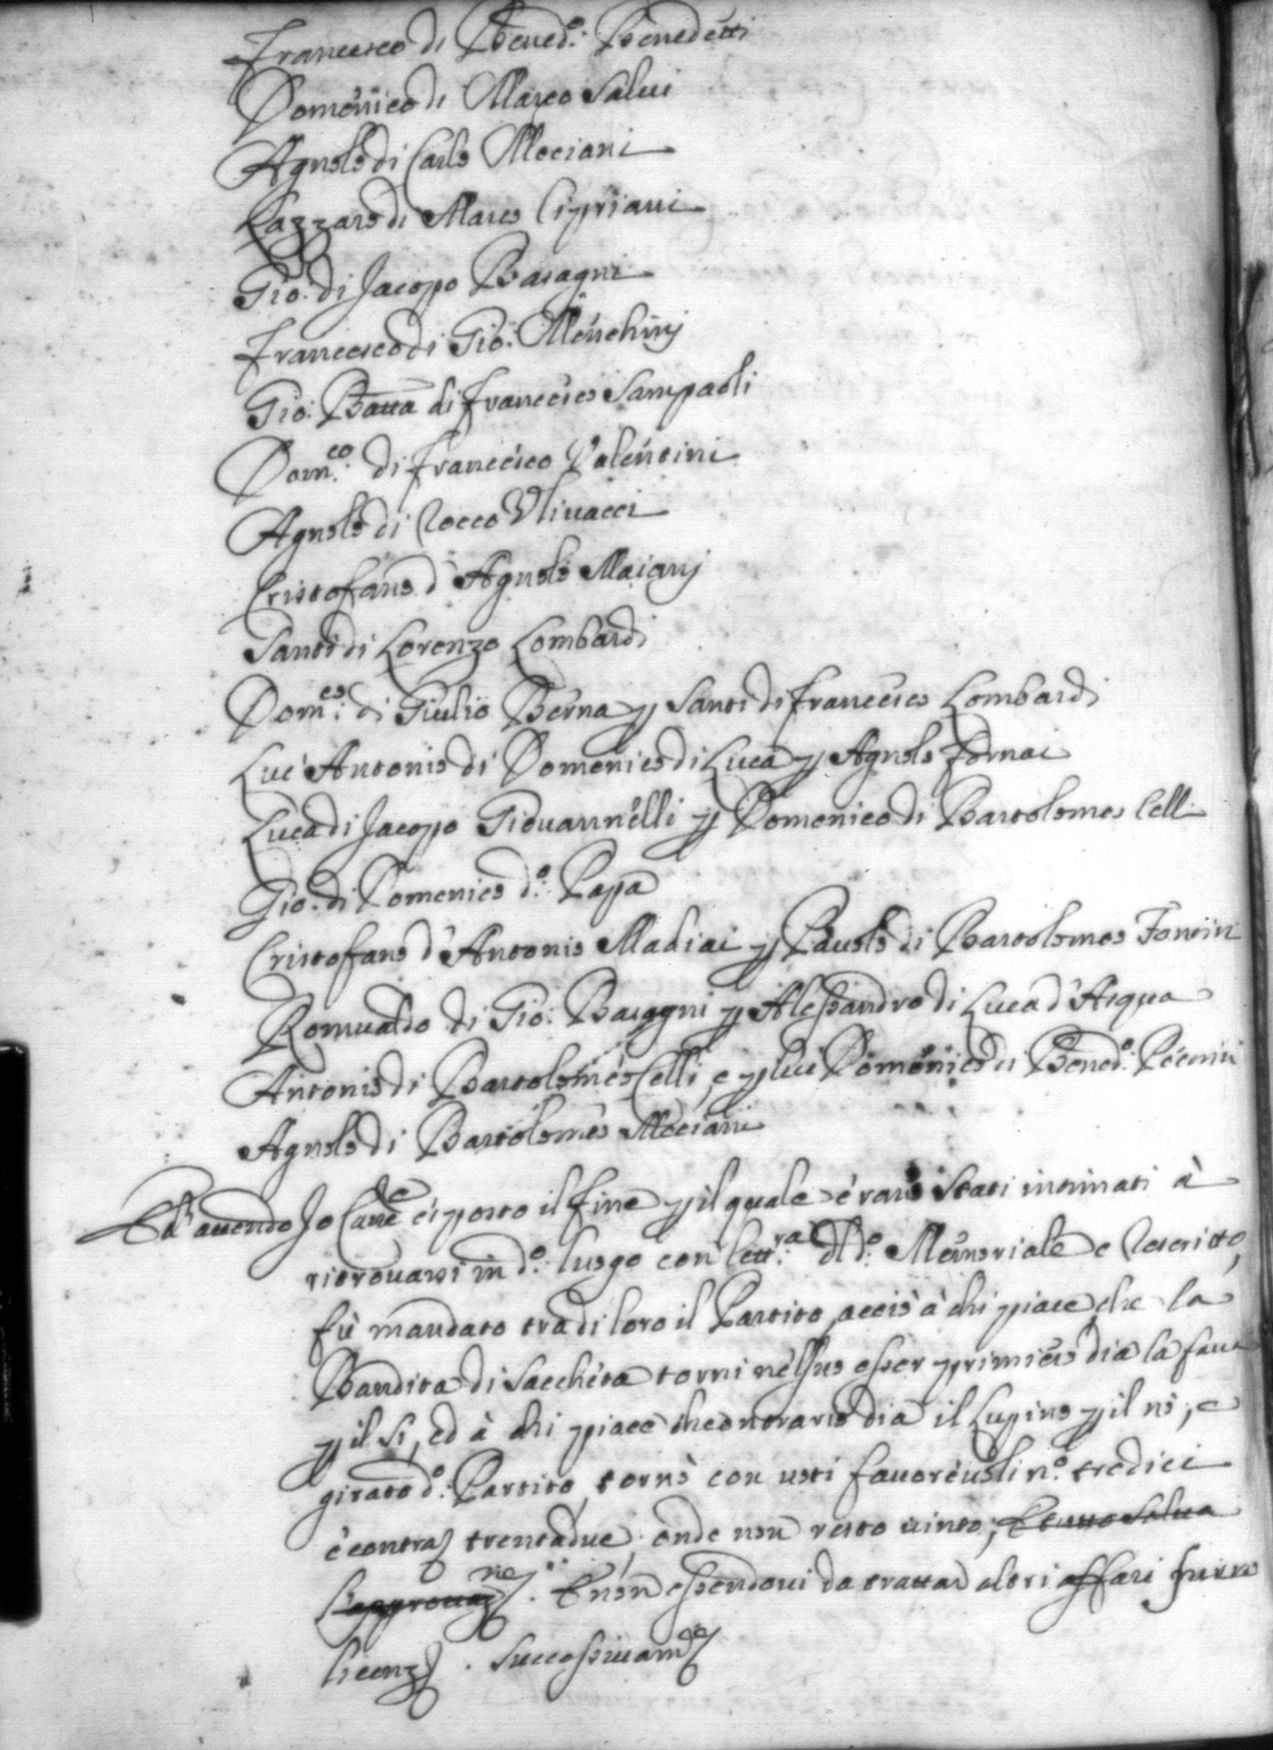 Francesco di Bened:º Benedetti
Domenico di Marco Salui
Agnolo di Carlo Mociani
Lazzaro di Marco Cipriani
Gio: di Jacopo Baragni
Francesco di Gio: Menchinj
Gio: Batta di Francesco Sampaoli
Dom:co di Francesco Valentini
Agnolo di Rocco Vliuacci
Cristofano d'Agnolo Maianj
Santi di Lorenzo Lombardi
Dom:co di Giulio Berna p Santi di Francesco Lombardi
Luc'Antonio di Domenico di Luca p Agnolo Fornai
Luca di Jacopo Giouannelli p Domenico di Bartolomeo Celli
Gio: di Domenico d:º Papa
Cristofano d'Antonio Madiai p Pauolo di Bartolomeo Fantini
Romualdo di Gio: Baragni p Alessandro di Luca d'Acqua
Antonio di Bartolomeo Celli, e p lui Domenico di Bened:º
Agnolo di Bartolomeo Mociani
Ed auendo Jo Canc:re esposto il fine p il quale erano stati intimati à
ritrouarsi in d:º luogo con lett:ra del d:º Memoriale e Rescritto,
fù mandato tra di loro il Partito, acciò à chi piace, che la
Bandita di Saccheta torni nel suo esser primiero dia la faua
p il sì, ed à chi piace il contrario dia il Lupino p il nò, e
girato d:º Partito, tornò con uoti fauoreuoli n:º tredici
e contrarj trentadue, onde non restò uinto; Et atto salua
l'approuaz:ne. E non essendoui da trattar altri affari furno
licenz:ti. Successiuam:te